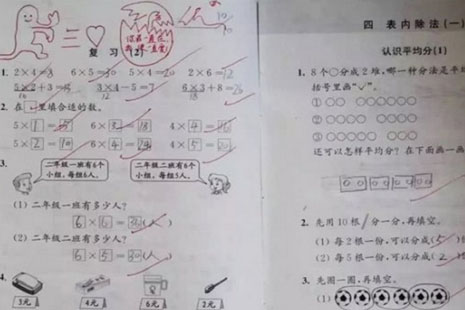 三
你若一直在
我便一直爱
10
10
复 习 (2)
1. 2×4=8 6×5=30 5×4=20 2×6=12
5×2+3= 3×4-5=7 6×3+8=26
10 12 18
2. 在□里填合适的数。
5×1=5 6×3=18 4×4=16
5×2=10 6×4=24 4×5=20
3. 二年级一班有6个 二年级二班有6个
小组,每组6人。 小组,每组5人。
(1) 二年级一班有多少人?
6×6=36(人)
(2) 二年级二班有多少人?
6×5=30(人)
4.
3元 4元 6元 2元
四 表内除法(一)
认识平均分(1)
1. 8个○分成2堆,哪一种分法是平均
括号里画"✓"。
①
②
③
还可以怎样平均分?在下面画一画
2. 先用10根 分一分,再填空。
(1) 每2根一份,可以分成(5)
(2) 每5根一份,可以分成(2)
3. 先圈一圈,再填空。
(1)